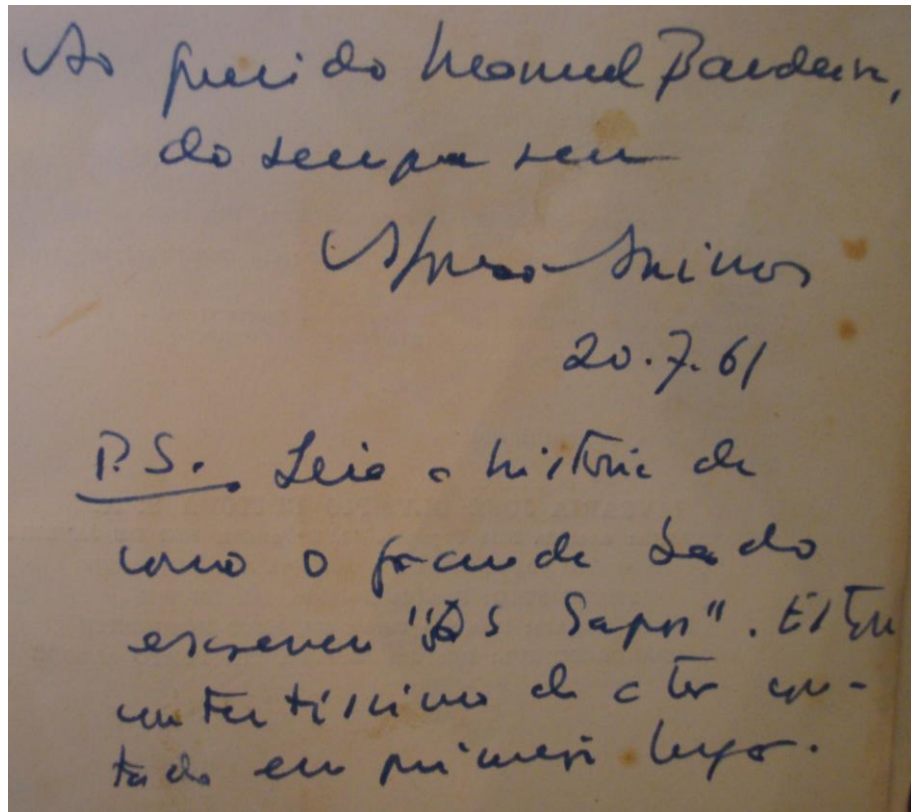 Ao querido Manuel Bandeira,
do sempre seu
Afonso Arinos
20.7.61
P.S. Leia a história de
como o grande Sado
escreveu "Os Sapos". Estou
contentíssimo de a ter con-
tado em primeiro lugar.